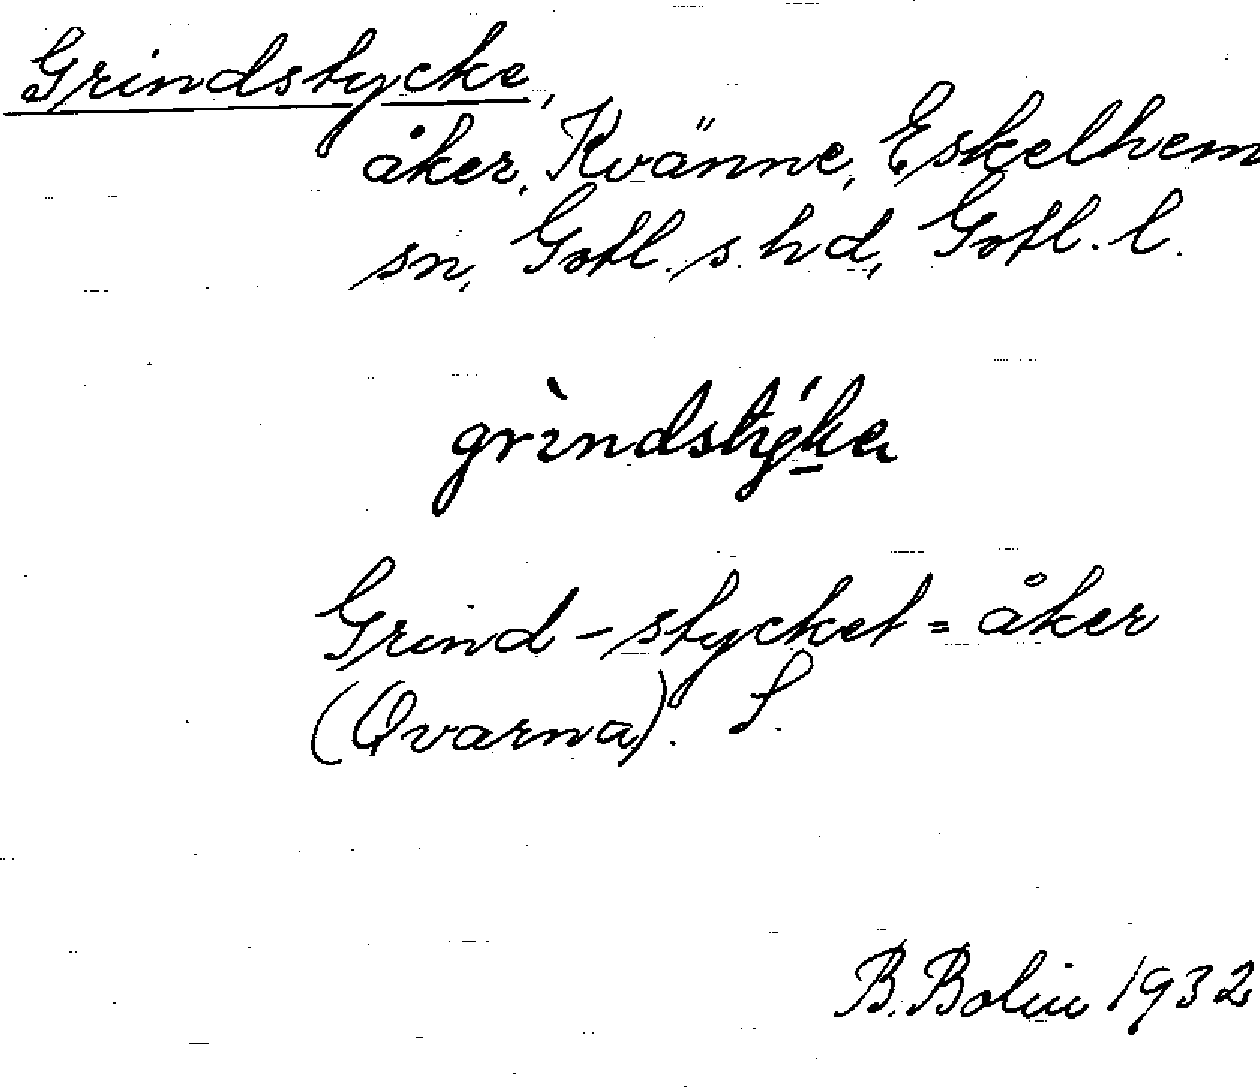 Grindstycke,
åker, Kvänne, Eskelhem
sn, Gotl. s. hd, Gotl. l.
grìndstýke
Grind-stycket = åker
(Qvarna). S.
B. Bolin 1932